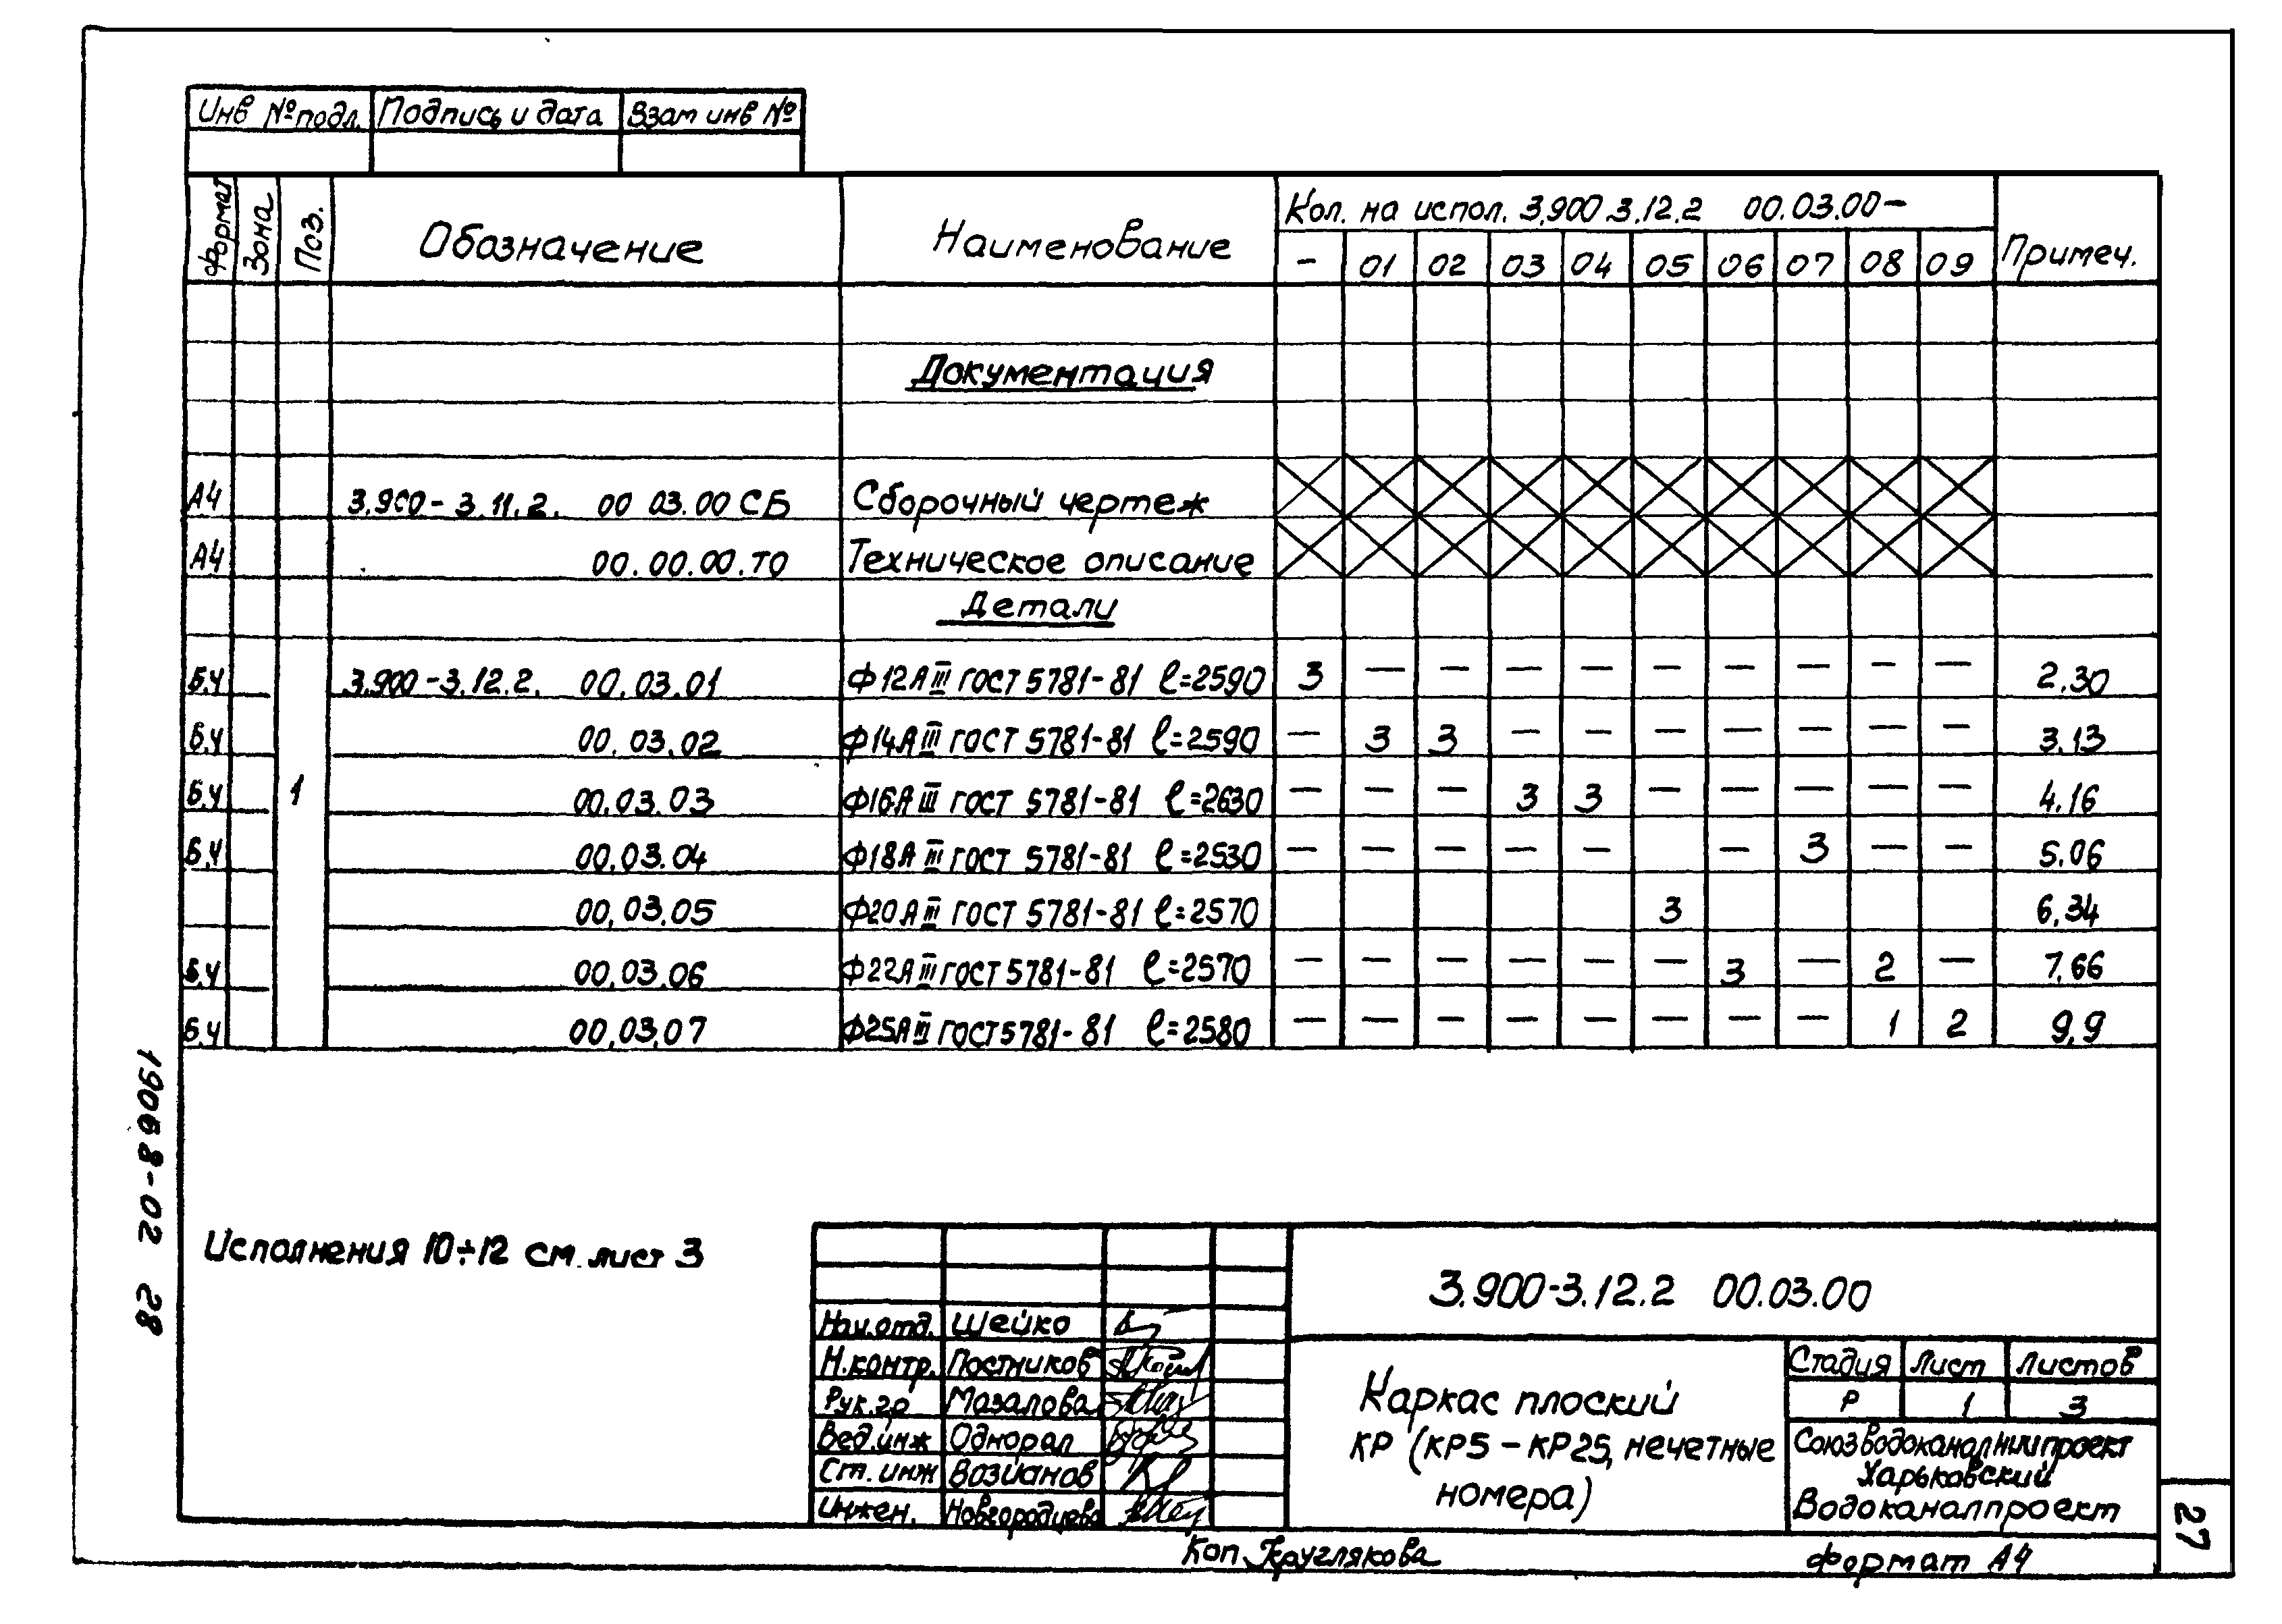 Инв № подл. Подпись и дата Взам инв №
Формат Зона Поз. Обозначение Наименование Кол. на испол. 3.900.3.12.2 00.03.00- Примеч.
- 01 02 03 04 05 06 07 08 09
Документация
А4 3.900-3.11.2. 00 03.00 СБ Сборочный чертеж
А4 00.00.00.ТО Техническое описание
Детали
Б.Ч 3.900-3.12.2. 00.03.01 Ф12АIII ГОСТ 5781-81 ℓ=2590 3 — — — — — — — — — 2.30
Б.Ч 00.03.02 Ф14АIII ГОСТ 5781-81 ℓ=2590 — 3 3 — — — — — — — 3.13
Б.Ч 1 00.03.03 Ф16АIII ГОСТ 5781-81 ℓ=2630 — — — 3 3 — — — — — 4.16
Б.Ч 00.03.04 Ф18АIII ГОСТ 5781-81 ℓ=2530 — — — — — — 3 — — 5.06
00.03.05 Ф20АIII ГОСТ 5781-81 ℓ=2570 3 6.34
Б.Ч 00.03.06 Ф22АIII ГОСТ 5781-81 ℓ=2570 — — — — — — 3 — 2 — 7.66
Б.Ч 00.03.07 Ф25АIII ГОСТ 5781-81 ℓ=2580 — — — — — — — — 1 2 9,9
19098-02 28
Исполнения 10÷12 см. лист 3
3.900-3.12.2 00.03.00
Нач.отд. Шейко
Н.контр. Постников
Рук.гр Мазалова
Вед.инж Однорал
Ст.инж Возианов
Инжен. Новгородцева
Каркас плоский
КР (КР5-КР25, нечетные
номера)
Стадия Лист Листов
Р 1 3
Союзводоканалниипроект
Харьковский
Водоканалпроект
27
Коп Круглякова Формат А4